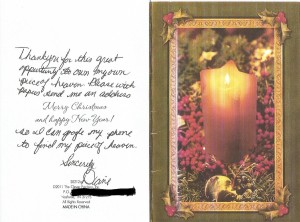 Thankyou for this great
oppertunity to own my own
piece of heaven. Please with
papers send me an address
Merry Christmas
and happy New Year!
so I can google my phone
to find my piece of heaven.
Sincerely
©2011 The
MADE IN CHINA